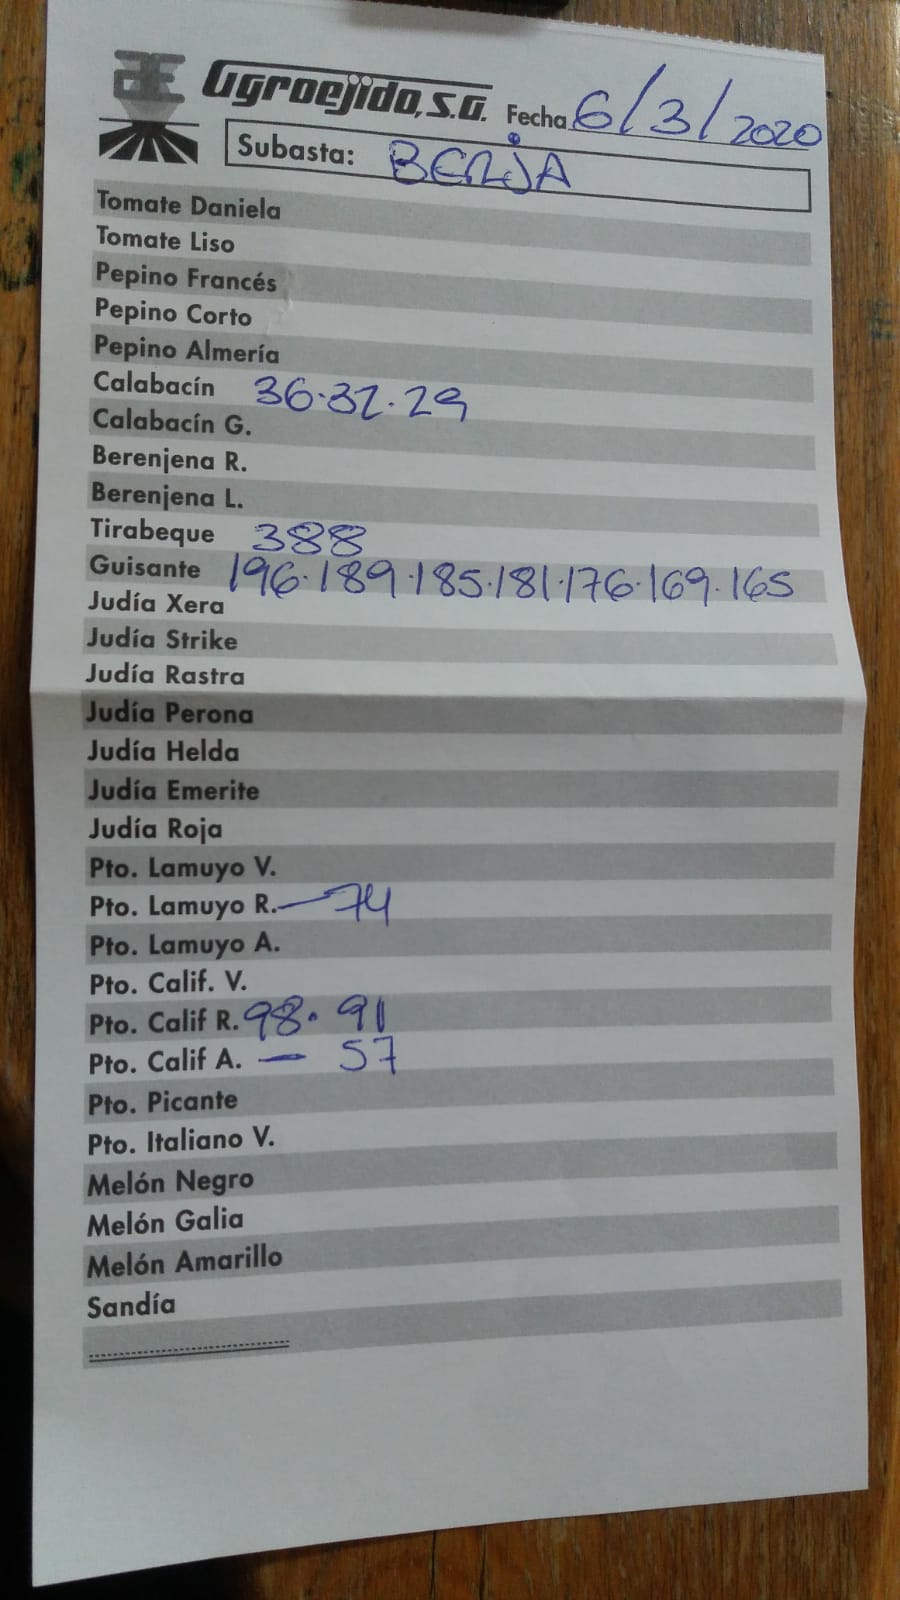 Agroejido, S.A. Fecha 6/3/2020
Subasta: BERJA
Tomate Daniela
Tomate Liso
Pepino Francés
Pepino Corto
Pepino Almería
Calabacín 36.32.29
Calabacín G.
Berenjena R.
Berenjena L.
Tirabeque 388
Guisante 196.189.185.181.176.169.165
Judía Xera
Judía Strike
Judía Rastra
Judía Perona
Judía Helda
Judía Emerite
Judía Roja
Pto. Lamuyo V.
Pto. Lamuyo R. — 74
Pto. Lamuyo A.
Pto. Calif. V.
Pto. Calif R. 98. 91
Pto. Calif A. — 57
Pto. Picante
Pto. Italiano V.
Melón Negro
Melón Galia
Melón Amarillo
Sandía